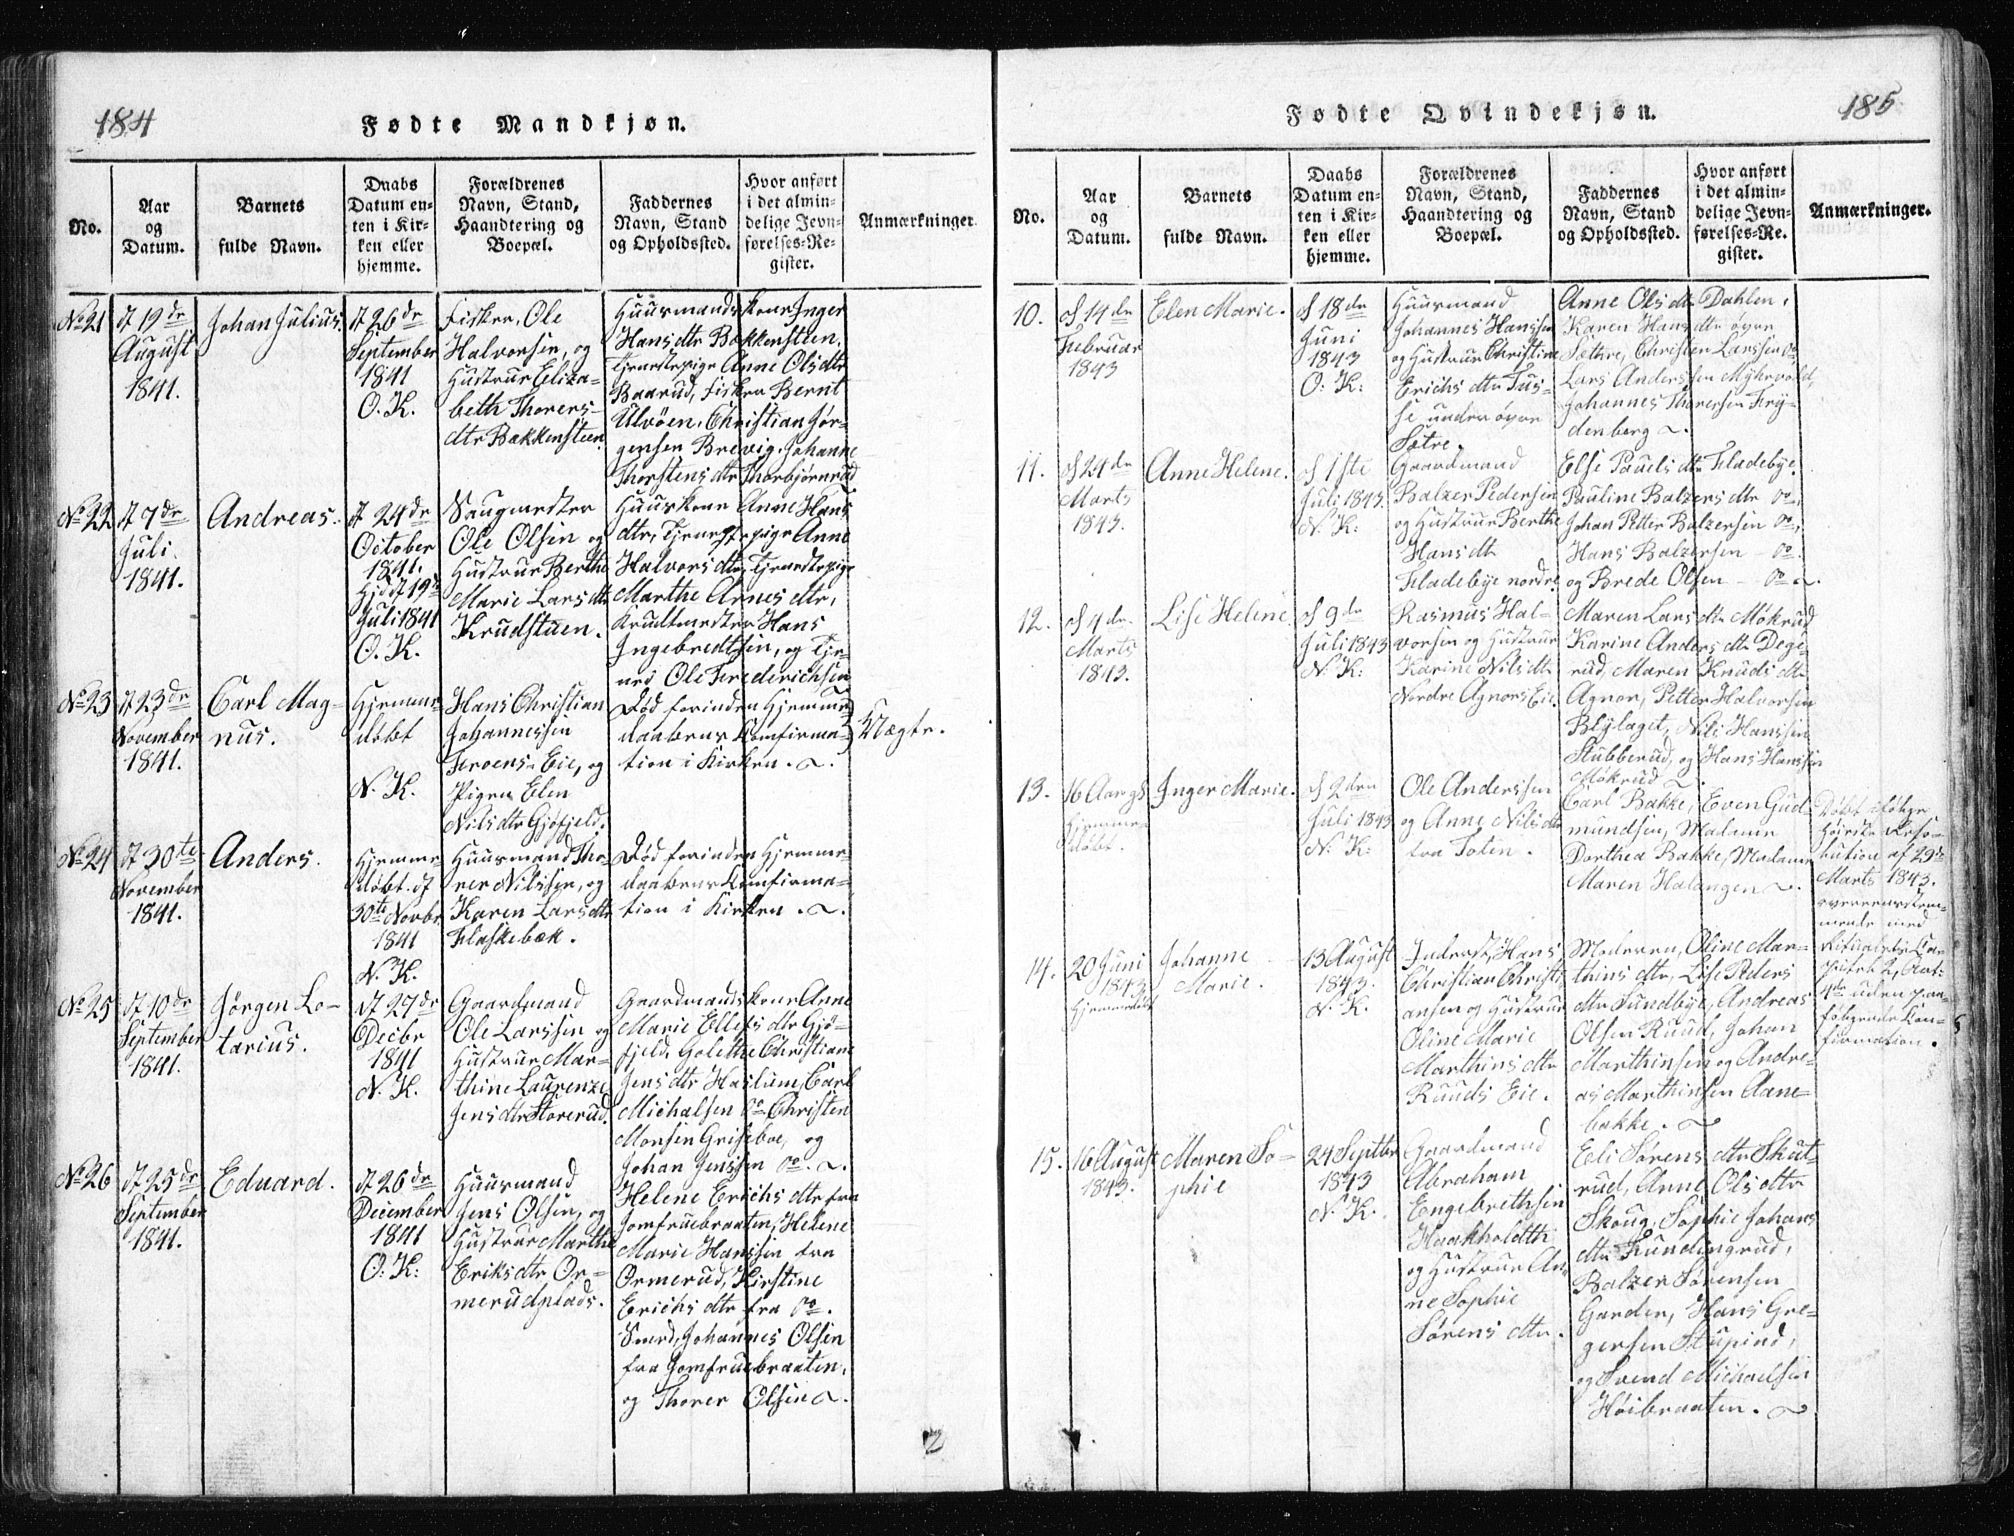 184
Fødte Mandkjøn.
No.
Aar
og
Datum.
Barnets
fulde Navn.
Daabs
Datum en-
ten i Kir-
ken eller
hjemme.
Forældrenes
Navn, Stand,
Haandtering og
Boepæl.
Faddernes
Navn, Stand
og Opholdssted.
Hvor anført
i det almin-
delige Jevn-
førelses-Re-
gister.
Anmærkninger.
No 21
d 19de
August
1841.
Johan Julius.
d 26de
September
1841
O. K.
Fisker, Ole
Halvorsen, og
Hustrue Eliza-
beth Thorers-
dtr Bakkensteen
Huusmandskone Inger
Hans dtr Bakkensteen,
Tjenestepige Anne Ols dtr
Baarud, Fisker Bernt
Ulvøen, Christian Jør-
gensen Brevig, Johanne
Thorstens dtr Thorbjørnrud
No 22
d 7de
Juli
1841.
Andreas.
d 24de
October
1841.
Hjd d 19de
Juli 1841
O. K.
Saugmester
Ole Olsen og
Hustrue Berthe
Marie Lars dtr
Krudstuen.
Huuskone Anne Hans
dtr, Tjenestepige Anne
Halvors dtr, Tjenestepige
Marthe Arnes dtr,
Krudtmester Hans
Ingebredtsen, og Tje-
nes Ole Frederichsen
No 23
d 23de
November
1841.
Carl Mag-
nus.
Hjemme-
døbt
N. K.
Hans Christian
Johannessen
Froens-Eie, og
Pigen Elen
Nils dtr Gjøfjeld.
Død forinden Hjemme-
daabens Confirma-
tion i Kirken.
Uægte.
No 24
d 30te
November
1841.
Anders.
Hjemme-
døbt d
30te Novbr
1841
N. K.
Huusmand Tho-
rer Nilssen, og
Karen Lars dtr
Flaskebæk.
Død forinden Hjemme-
daabens Confirma-
tion i Kirken.
No 25
d 10de
September
1841.
Jørgen Lo-
tarius.
d 27de
Decbr
1841
N. K.
Gaardmand
Ole Larssen og
Hustrue Mar-
thine Laurenze
Jens dtr Storerud.
Gaardmandskone Anne
Marie Ellefs dtr Gjø-
fjeld, Golethe Christiane
Jens dtr Haslum, Carl
Michalsen do Christen
Monsen Griseboe, og
Johan Jenssen do.
No 26
d 25de
September
1841.
Eduard.
d 26de
December
1841
O. K.
Huusmand
Jens Olsen, og
Hustrue Marthe
Eriks dtr Or-
merudplads.
Helene Erichs dtr fra
Jomfruebraaten, Helene
Marie Hanssen fra
Ormerud, Kirstine
Erichs dtr fra do.
Smed, Johannes Olsen
fra Jomfruebraaten,
og Thorer Olsen.
2
185
Fødte Qvindekjøn.
No.
Aar
og
Datum.
Barnets
fulde Navn.
Daabs
Datum en-
ten i Kir-
ken eller
hjemme.
Forældrenes
Navn, Stand,
Haandtering og
Boepæl.
Faddernes
Navn, Stand
og Opholdssted.
Hvor anført
i det almin-
delige Jevn-
førelses-Re-
gister.
Anmærkninger.
10.
d 14de
Februar
1843
Elen Marie.
d 18de
Juni
1843
O. K:
Huusmand
Johannes Hanssen
og Hustrue Christine
Erichs dtr Tus-
se under øvre
Sætre.
Anne Ols dtr Dahlen,
Karen Hans dtr øvre
Sæthre, Christen Larssen do
Lars Anderssen Myhrvold,
Johannes Thorersen Fry-
denberg.
11.
d 24de
Marts
1843.
Anne Helene.
d 1ste
Juli 1843.
N. K:
Gaardmand
Balzer Pedersen
og Hustrue Berthe
Hans dtr
Fladebye nordre.
Else Pauels dtr Fladebye,
Pauline Balzers dtr do,
Johan Petter Balzersen do,
Hans Balzersen - do.
og Brede Olsen - do.
12.
d 4de
Marts
1843.
Lise Helene.
d 9de
Juli 1843
N. K:
Rasmus Hal-
vorsen og Hustrue
Karine Nils dtr
Nordre Agnors Eie.
Maren Lars dtr Møkrud
Karine Anders dtr Dege-
rud, Maren Knuds dtr
Agnor, Petter Halvorsen
Blylaget, Nils Hanssen
Stubberud, og Hans Hanssen
Møkrud.
13.
16
Hjemme-
døbt.
Inger Marie.
d 2den
Juli 1843
N. K:
Ole Anderssen
og Anne Nils dtr
fra Toten.
Carl Bakke, Even Gud-
mundsen, Madame
Dorthea Bakke, Madame
Maren Halangen.
Døbt ifølge
Høieste Reso-
lution af 29de
Marts 1843.
overeenstem-
mende med
Ritualets Ca-
pitel 2, Art:
4de uden paa-
følgende Con-
firmation.
14.
20 Juni
1843
Hjemmedøbt
Johanne
Marie.
13 August
1843.
N. K.
Inderst, Hans
Christian Christi-
ansen og Hustrue
Oline Marie
Marthins dtr
Ruuds Eie.
Moderen, Oline Mar-
thins dtr, Lise Peders
dtr Sundbye, Andreas
Olsen Ruud, Johan
Marthinsen og Andre-
as Marthinsen Aane-
bakke.
15.
16 August
1843.
Maren So-
phie
24 Septbr
1843
N. K.
Gaardmand
Abraham
Engebrethsen
Haakholdth
og Hustrue An-
ne Sophie
Sørens dtr.
Eli Sørens dtr Skut-
rud, Anne Ols dtr
Skoug, Sophie Johans
dtr Kundingrud,
Balzer Sørensen
Garder, Hans Gre-
gersen Stupind,
og Svend Michaelsen
Høibraaten.